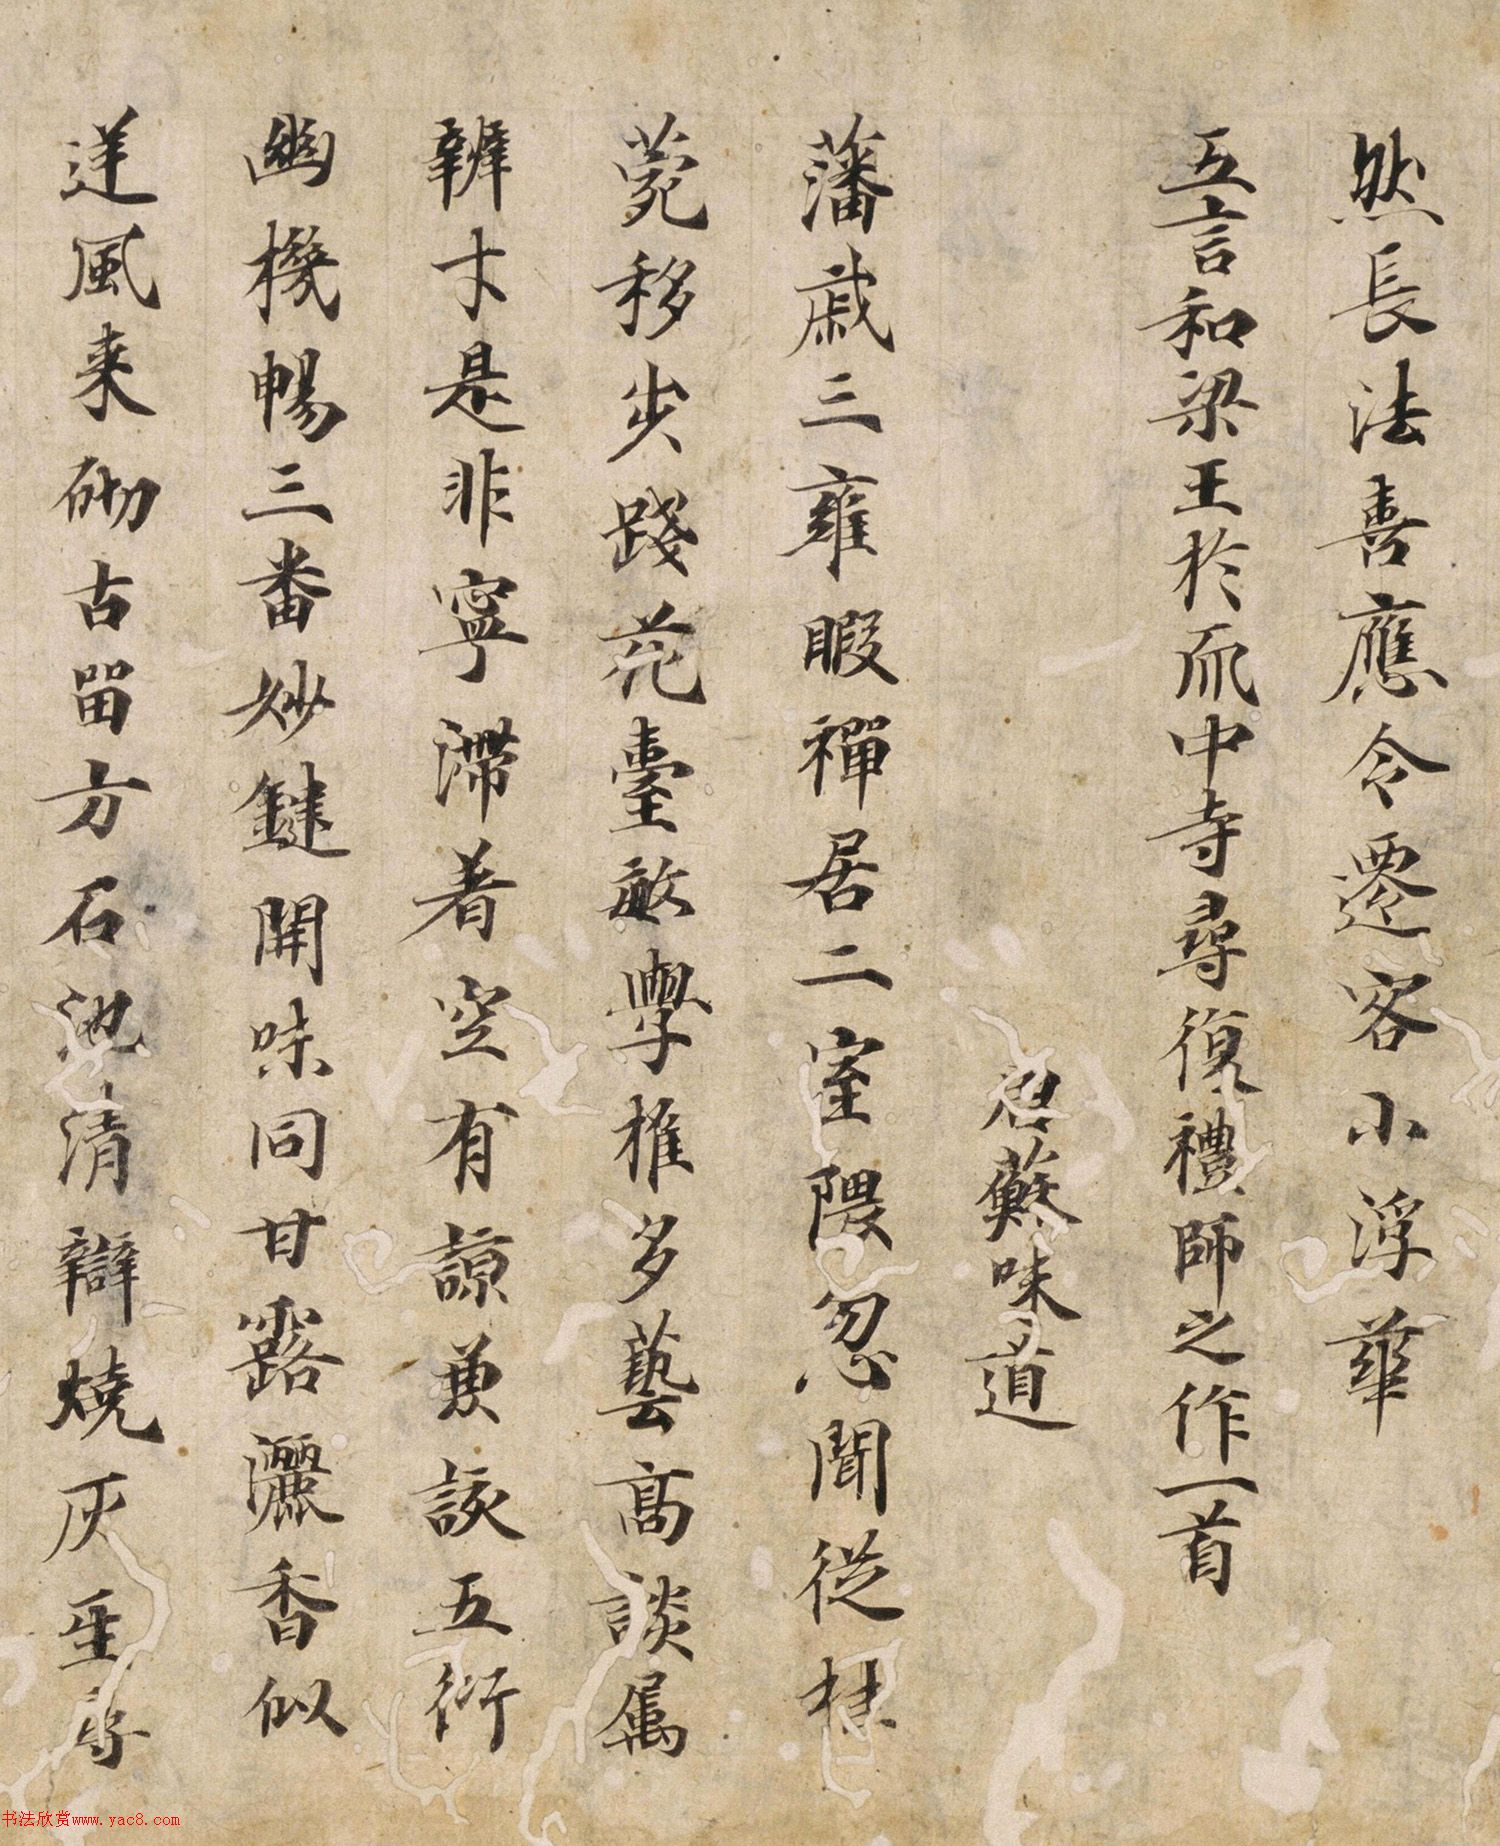 然長法喜應令遷客小浮華
五言和梁王於瓜中寺尋復禮師之作一首
蘇味道
藩戚三雍暇禪居二室隈忽聞從桂
菀移步踐花臺敏學推多藝高談属
辨才是非寧滯着空有諒兼該五衍
幽機暢三番妙鍵開味同甘露灑香似
逆風来砌古留方石池清辯燒灰聖尋
书法欣赏www.yac8.com